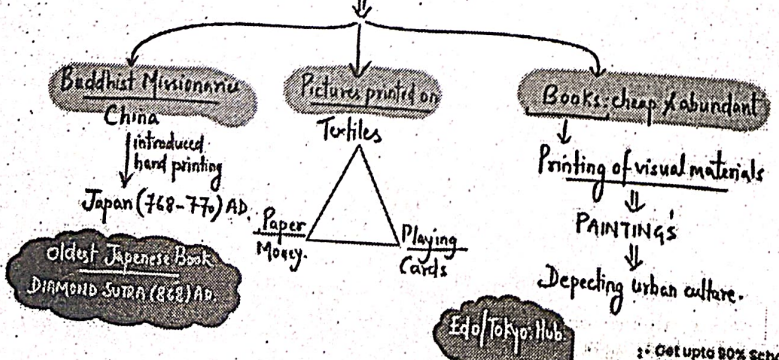 Buddhist Missionaries
China
introduced
hand printing
Japan (768-770) AD.
Oldest Japenese Book
DIAMOND SUTRA (868) AD.
Pictures printed on
Textiles
Paper
Money.
Playing
Cards
Books: cheap & abundant
Printing of visual materials
PAINTING'S
Depecting urban culture.
Edo/Tokyo: Hub.
Get upto 80%